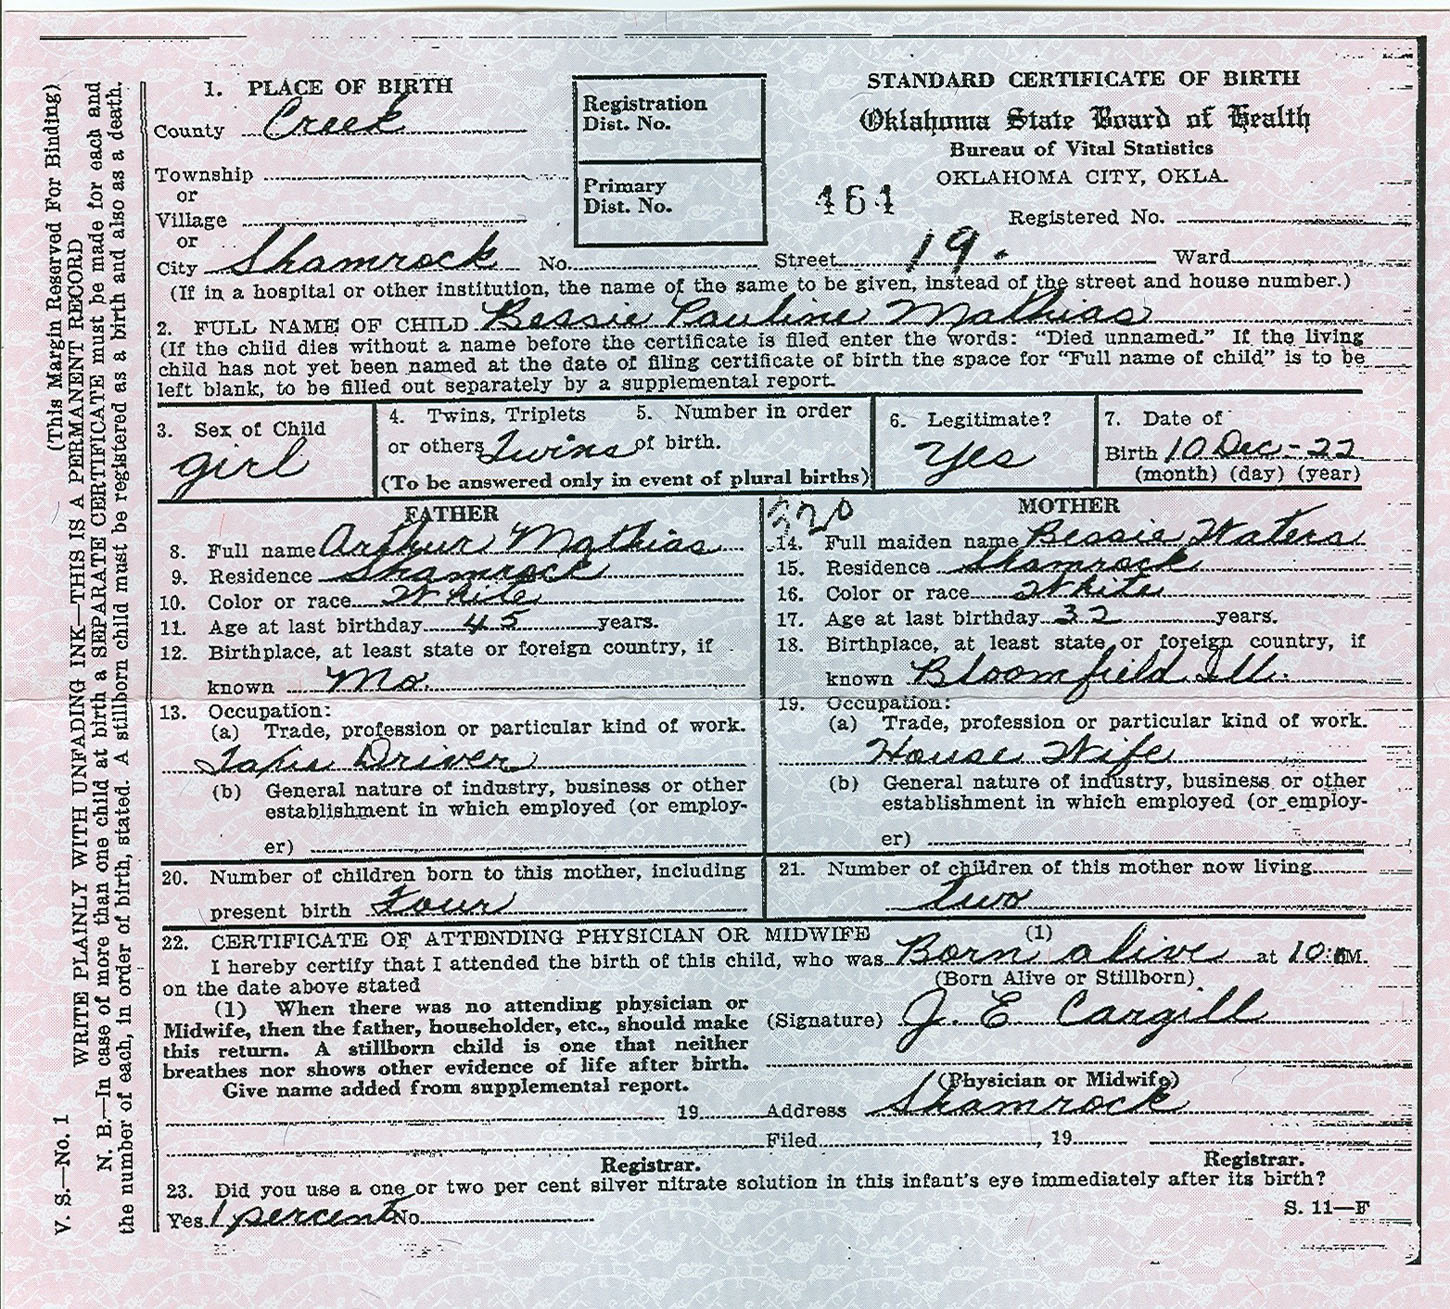 1. PLACE OF BIRTH
County Creek
Township
or
Village
or
City Shamrock No. Street 19. Ward
Registration
Dist. No.
Primary
Dist. No.
STANDARD CERTIFICATE OF BIRTH
Oklahoma State Board of Health
Bureau of Vital Statistics
OKLAHOMA CITY, OKLA.
464
Registered No.
(If in a hospital or other institution, the name of the same to be given, instead of the street and house number.)
2. FULL NAME OF CHILD Bessie Pauline Mathias
(If the child dies without a name before the certificate is filed enter the words: "Died unnamed." If the living
child has not yet been named at the date of filing certificate of birth the space for "Full name of child" is to be
left blank, to be filled out separately by a supplemental report.
3. Sex of Child
girl
4. Twins, Triplets 5. Number in order
or others Twins of birth.
(To be answered only in event of plural births)
6. Legitimate?
Yes
7. Date of
Birth 10 Dec-22
(month) (day) (year)
FATHER
8. Full name Arthur Mathias
9. Residence Shamrock
10. Color or race White
11. Age at last birthday 45 years.
12. Birthplace, at least state or foreign country, if
known Mo.
13. Occupation:
(a) Trade, profession or particular kind of work.
Taxie Driver
(b) General nature of industry, business or other
establishment in which employed (or employ-
er)
320
MOTHER
14. Full maiden name Bessie Waters
15. Residence Shamrock
16. Color or race White
17. Age at last birthday 32 years.
18. Birthplace, at least state or foreign country, if
known Bloomfield Ill.
19. Occupation:
(a) Trade, profession or particular kind of work.
House Wife
(b) General nature of industry, business or other
establishment in which employed (or employ-
er)
20. Number of children born to this mother, including
present birth Four
21. Number of children of this mother now living
two
22. CERTIFICATE OF ATTENDING PHYSICIAN OR MIDWIFE (1)
I hereby certify that I attended the birth of this child, who was Born alive at 10: M.
on the date above stated (Born Alive or Stillborn)
(1) When there was no attending physician or
Midwife, then the father, householder, etc., should make
this return. A stillborn child is one that neither
breathes nor shows other evidence of life after birth.
Give name added from supplemental report.
19
Registrar.
(Signature) J. E Cargill
(Physician or Midwife)
Address Shamrock
Filed , 19
Registrar.
23. Did you use a one or two per cent silver nitrate solution in this infant's eye immediately after its birth?
Yes 1 percent No
S. 11—F
V. S.—No. 1
(This Margin Reserved For Binding)
WRITE PLAINLY WITH UNFADING INK—THIS IS A PERMANENT RECORD
N. B.—In case of more than one child at birth a SEPARATE CERTIFICATE must be made for each and
the number of each, in order of birth, stated. A stillborn child must be registered as a birth and also as a death.